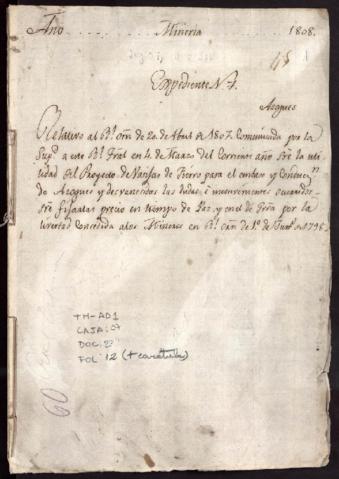 Año . . . . . . . . . Mineria . . . . . . . . 1808.
Expediente N. 7.
Azogues
Relativo al Rl. orn de 20 de Abril de 1807. Comunicada por la
Supd. a este Rl. Tral en 4. de Marzo del Corriente año sre la uti-
lidad del Proyecto de Vasijas de Fierro para el embase y Conducn.
de Azogues y desvanecidas las dudas é inconvenientes
sre fixarlas precio en tiempo de Paz, y en el de Grra por la
livertad concedida alos Mineros en Rl. orn de 1o. de 1796.
TH-AD1
CAJA: 07
DOC:
FOL: 12 (+ caratula)
60